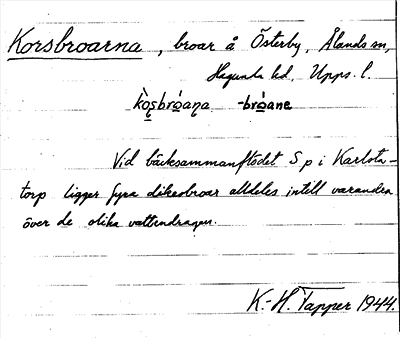 Korsbroarna, broar å Österby, Ålands sn,
Hagunda hd, Upps. l.
kòsbróaṇa -bróane
Vid bäcksammanflödet S p i Karlsta-
torp ligger fyra dikesbroar alldeles intill varandra
över de olika vattendragen.
K.-H. Tapper 1944.